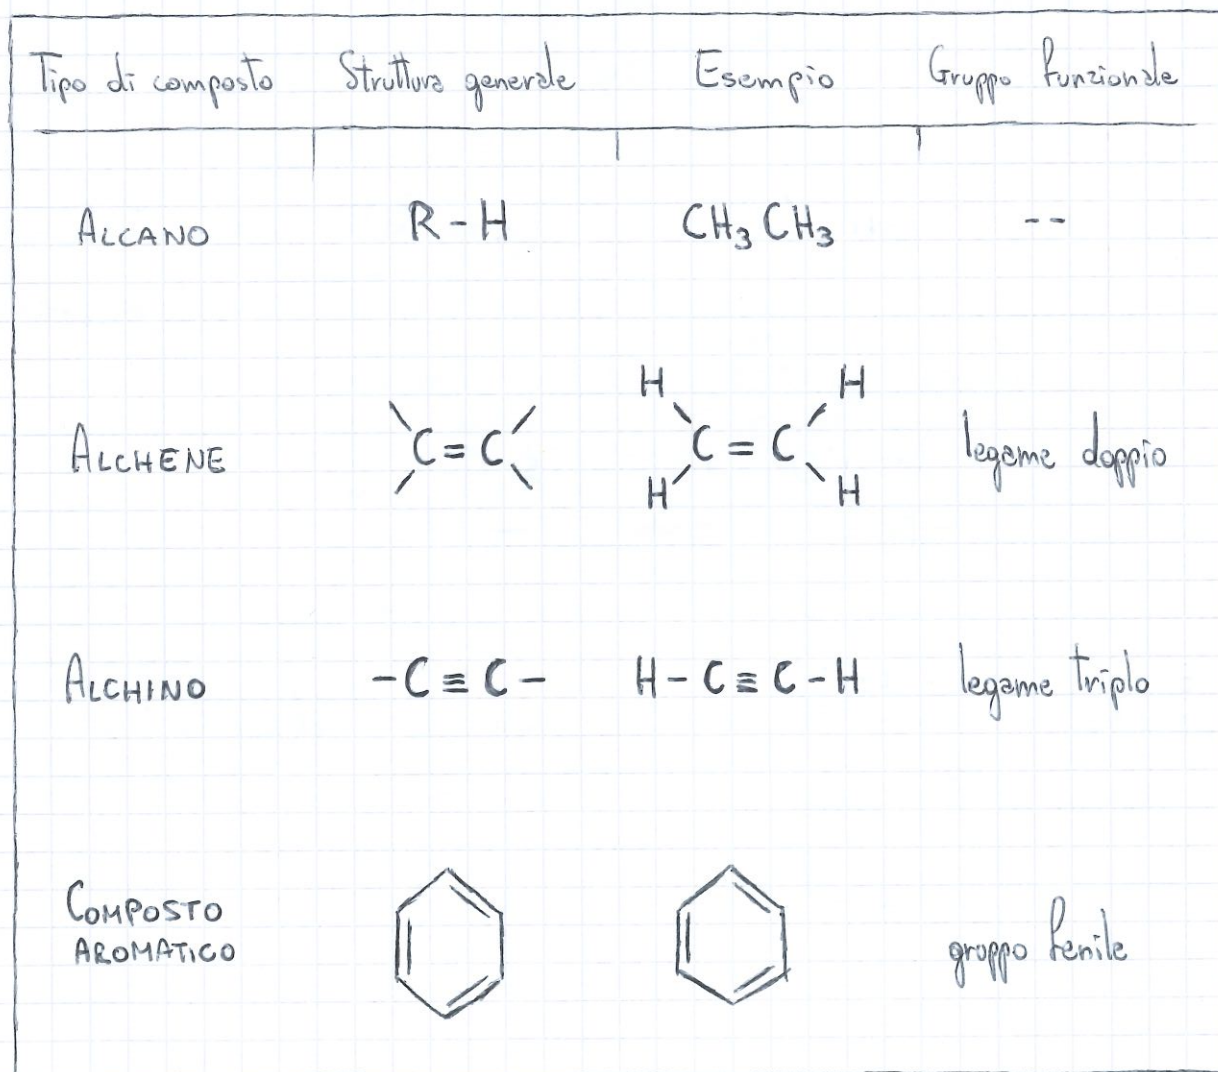 Tipo di composto Struttura generale Esempio Gruppo funzionale
ALCANO R-H CH₃CH₃ --
H H
ALCHENE C=C C=C legame doppio
H H
ALCHINO -C≡C- H-C≡C-H legame triplo
COMPOSTO
AROMATICO gruppo fenile